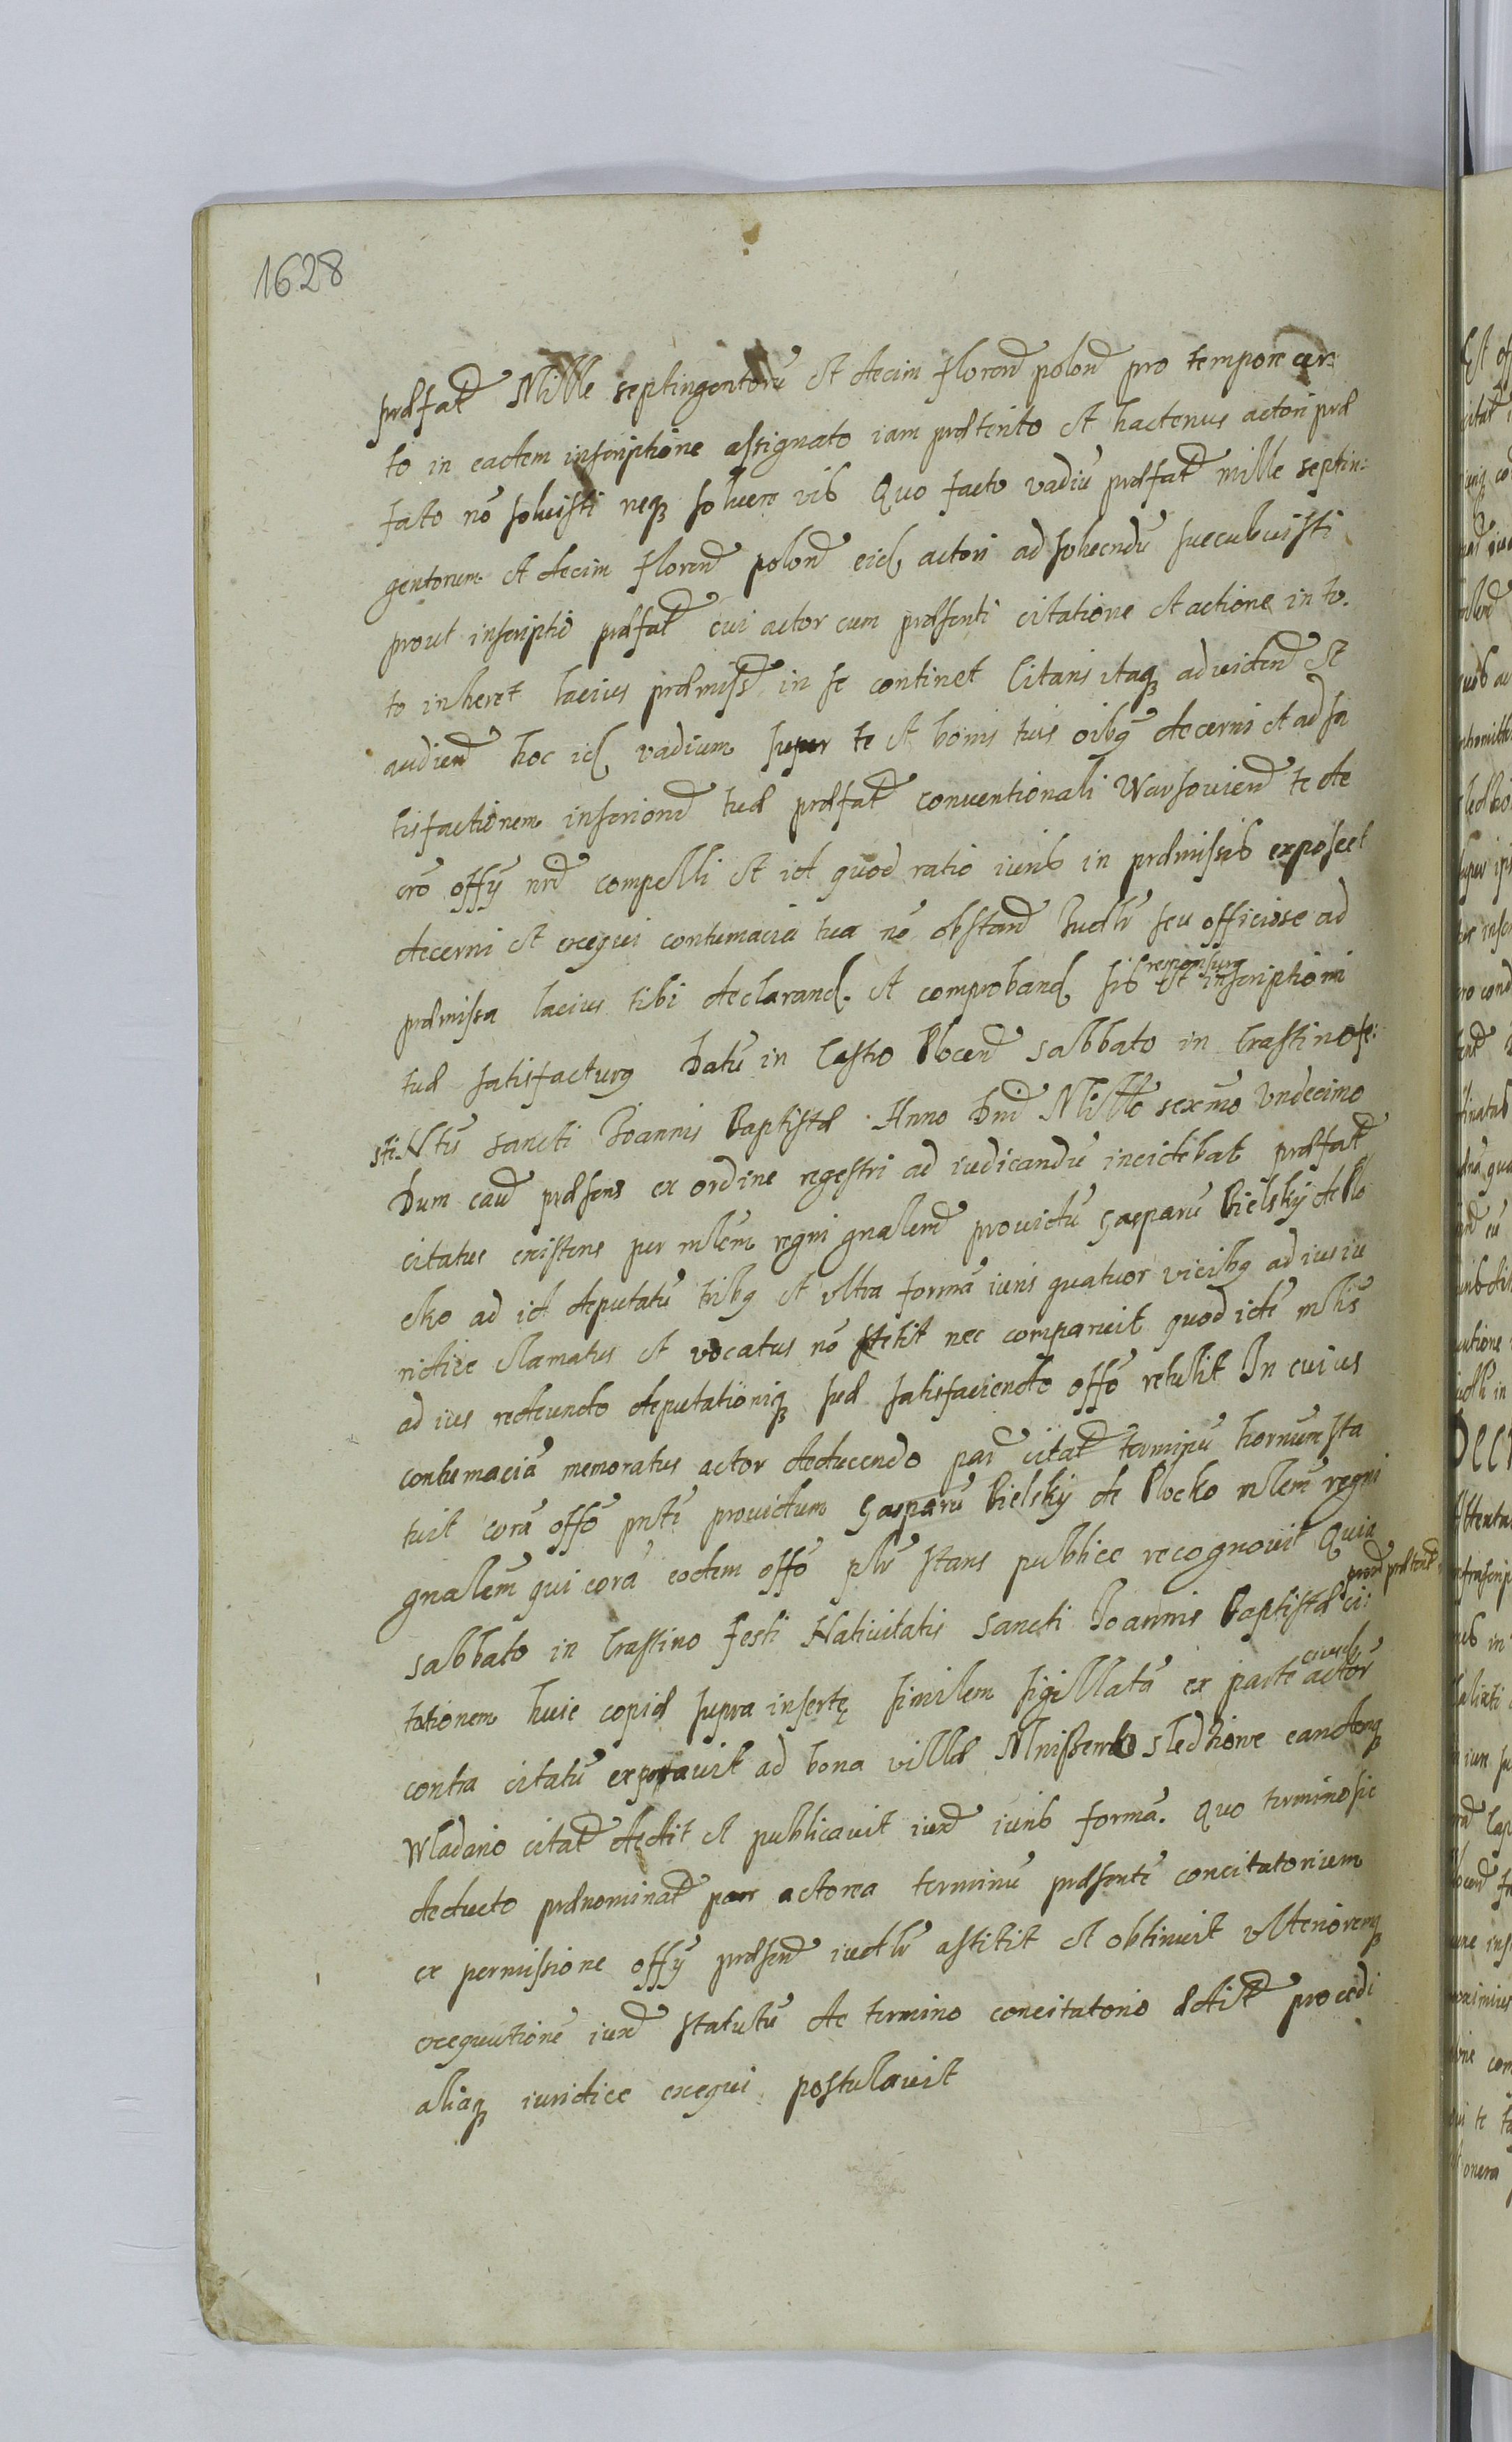 1628
præfat Mille septingentorũ et decim floren polon pro tempore cer:
to in eadem inscriptione assignato iam præterito et hactenus actori præ
fato nõ soluisti neq soluere vis Quo facto vadiũ præfat mille septin:
gentorum et decim floren polon eid actori ad soluendũ succubuisti
prout inscriptio præfat cui actor cum præsenti citatione et actione in to.
to inheret lacius præmiss in se continet Citaris itaq ad videnđ et
audienđ hoc id vadium super te et bonis tuis oibg decerni et ad sa
tisfactionem inscrionis tuæ præfat conuentionali Warsouien te de
cro offy nri compelli et id quod ratio iuris in præmissis exposcet
decerni et exequi contumacia tua nõ obstan Iudlr seu officiose ad
præmissa lacius tibi declarand. et comproband sis responsurg et inscriptioni
tuæ satisfacturg Datũ in Castro Plocen sabbato in Crastino fe:
sti Ntis sancti Joannis Baptistæ Anno Dni Mille sexmo Vndecimo
Dum caũ præsens ex ordine regestri ad iudicandũ incidebat præfat
citatus existens per mlem regni gnalem prouidũ Gasparũ Bielsky de Plo
cko ad id deputatũ tribg et vltra formã iuris quatuor vicibg ad ius iu
ridice clamatus et vocatus nõ stetit nec comparuit quod idẽ mlis
ad ius redeundo deputationiq suæ satisfaciendo offo retulit In cuius
contumaciã memoratus actor deducendo par citat terminũ hornum sta
tuit corã offo pnti prouidum Gasparũ Bielsky de Plocko mlem regni
gnalem qui corã eodem offo plr stans publice recognouit Quia
sabbato in Crastino festi Natiuitatis Sancti Joannis Baptistæ ci:
tationem huic copiæ supra insertę similem sigillatã ex parte actor
contra citatũ exportauit ad bona villæ Mniszewo Sledziowe eandemq
Wladario citat dedit et publicauit iux iuris formã. Quo termino sic
deducto prænominat pars actorea terminũ præsentẽ concitatorium
ex permissione offy præsen iudlr astitit et obtinuit vlterioremq
exequutionẽ iux statutũ de termino concitatorio ædit procedi
aliaq iuridice exequi postulauit